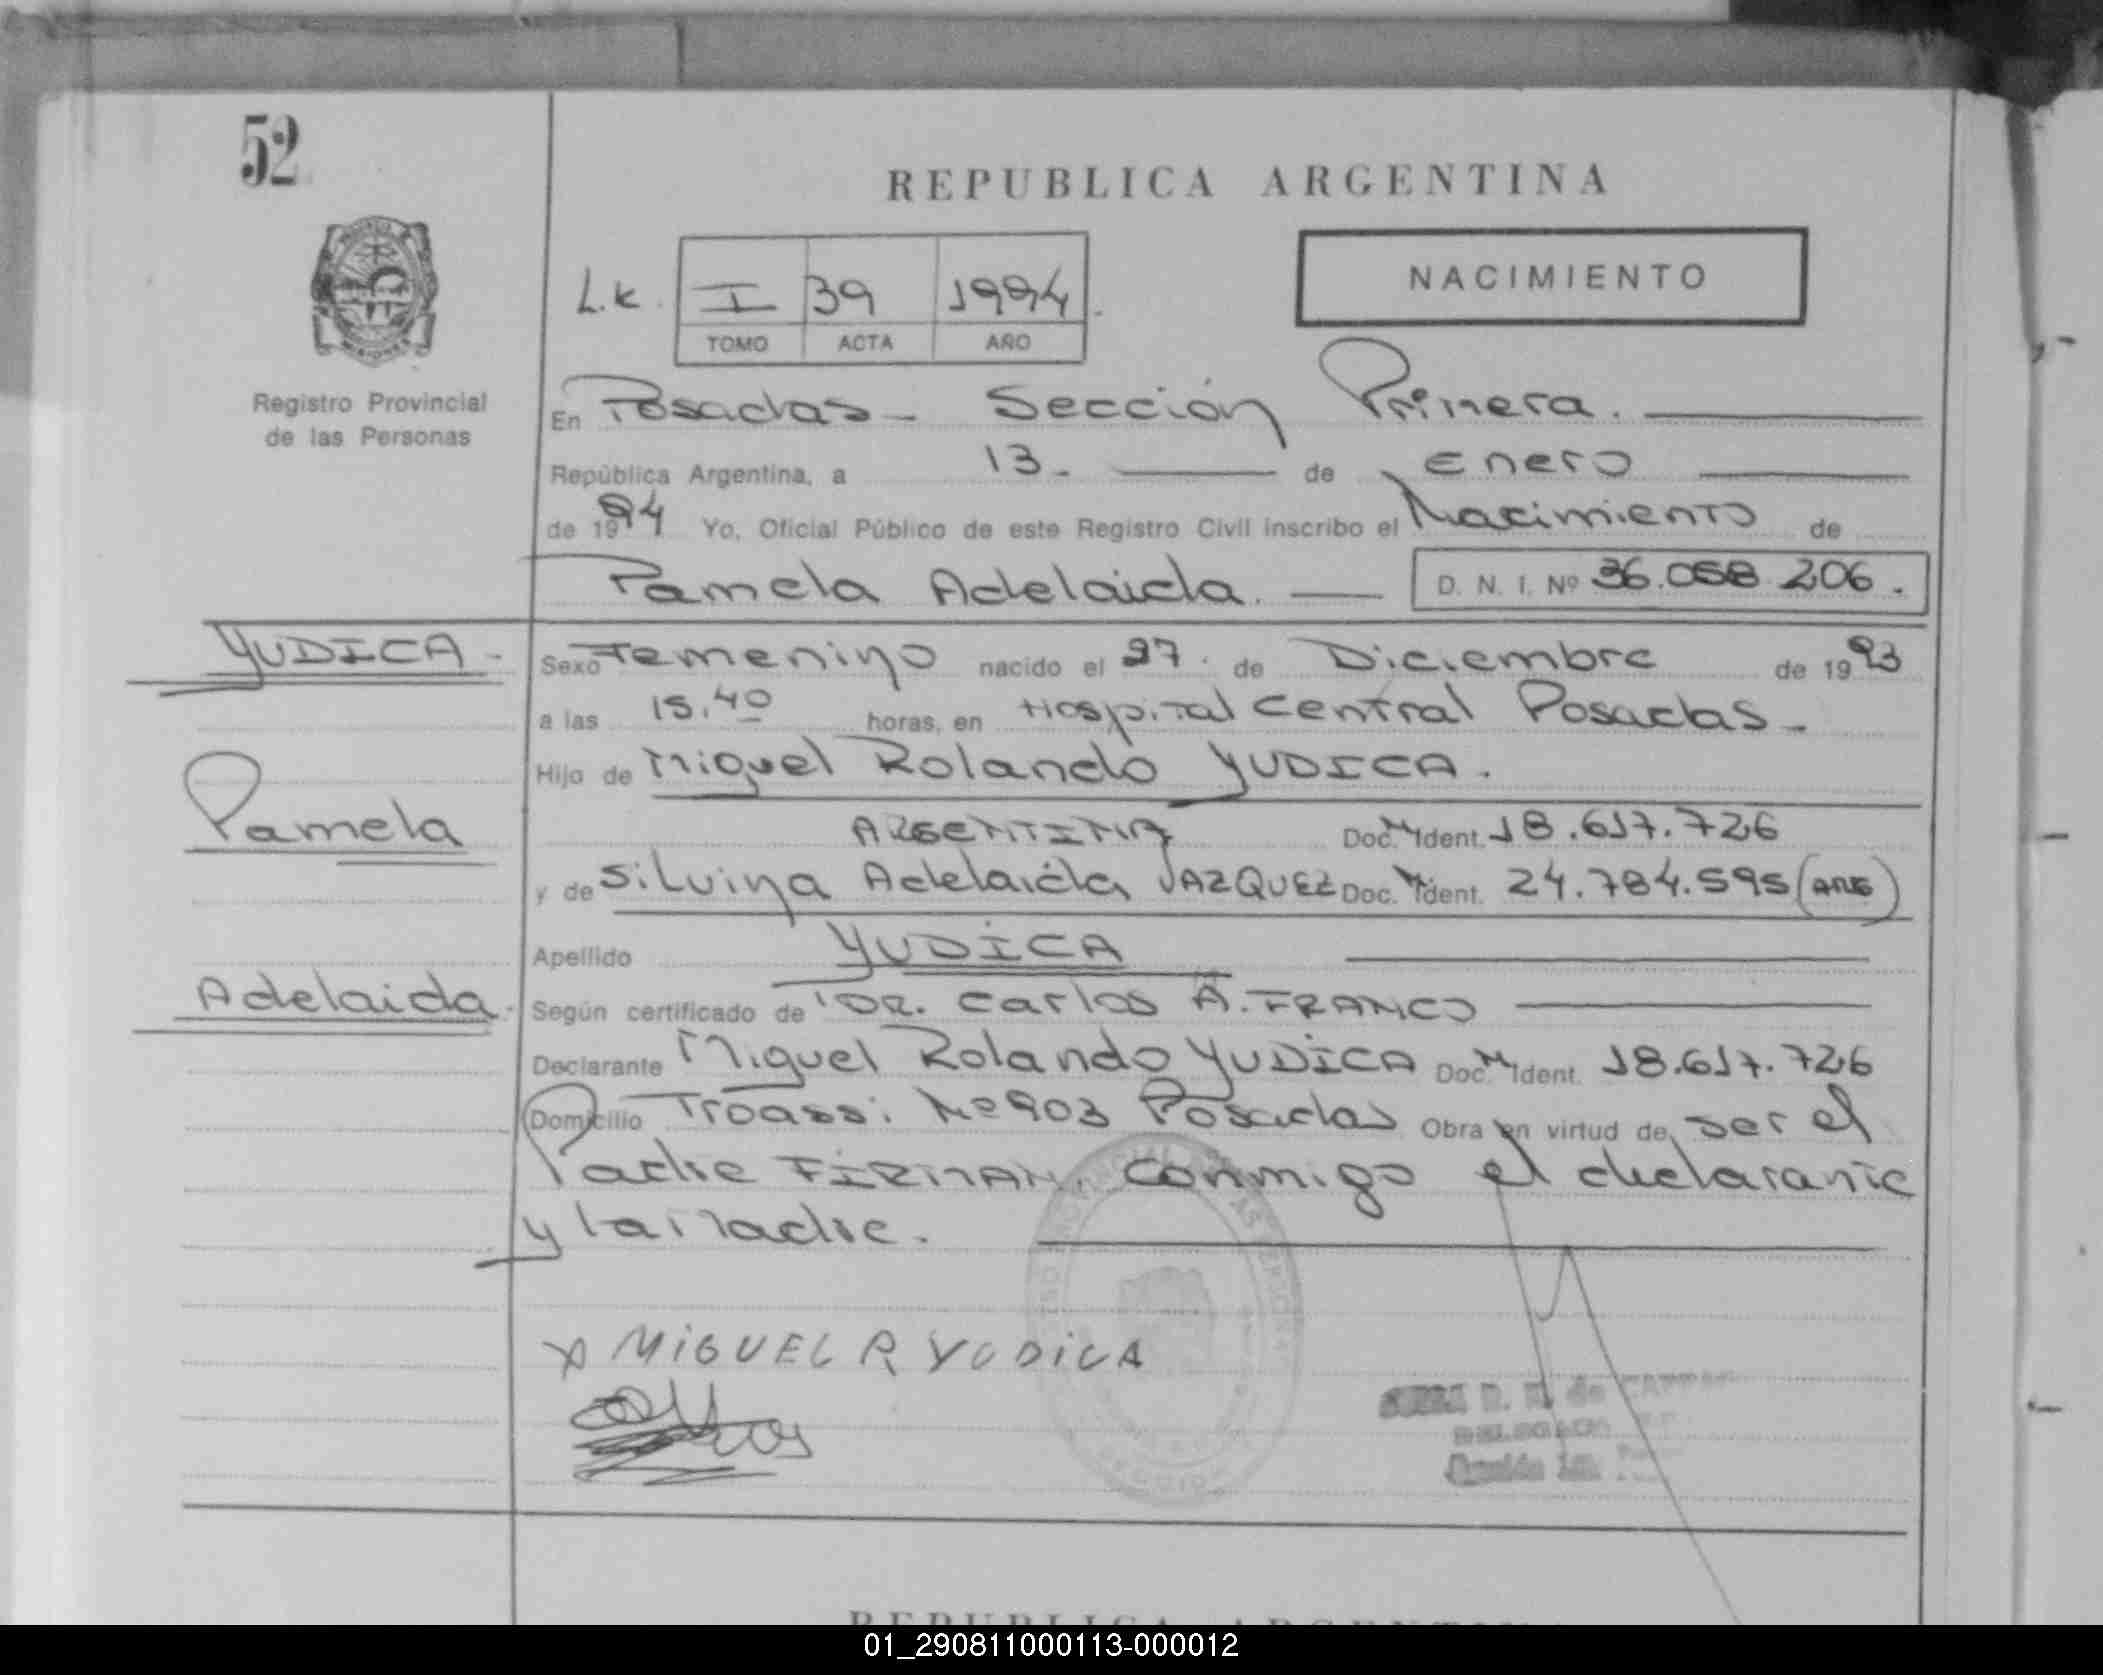 52
REPUBLICA ARGENTINA
NACIMIENTO
L.K. I 39 1994.
TOMO ACTA AÑO
MISIONES
Registro Provincial
de las Personas
En Posadas - Sección Primera.
República Argentina, a 13. de Enero
de 1994 Yo, Oficial Público de este Registro Civil inscribo el Nacimiento de
Pamela Adelaida. D. N. I. Nº 36.058.206.
YUDICA -
Sexo Femenino nacido el 27. de Diciembre de 1993
a las 15.40 horas, en Hospital Central Posadas -
Hijo de Miguel Rolando YUDICA.
Pamela
ARGENTINA Doc. M Ident. 18.617.726
y de Silvina Adelaida VAZQUEZ Doc. M Ident. 24.784.595 (ARG)
Apellido YUDICA
Adelaida.
Según certificado de DR. Carlos A. FRANCO
Declarante Miguel Rolando YUDICA Doc. M Ident. 18.617.726
Domicilio Troassi Nº 903 Posadas Obra en virtud de ser el
Padre FIRMAN. conmigo el declarante
y la Madre.
MIGUEL R YUDICA
REPUBLICA ARGENTINA
01_290811000113-000012